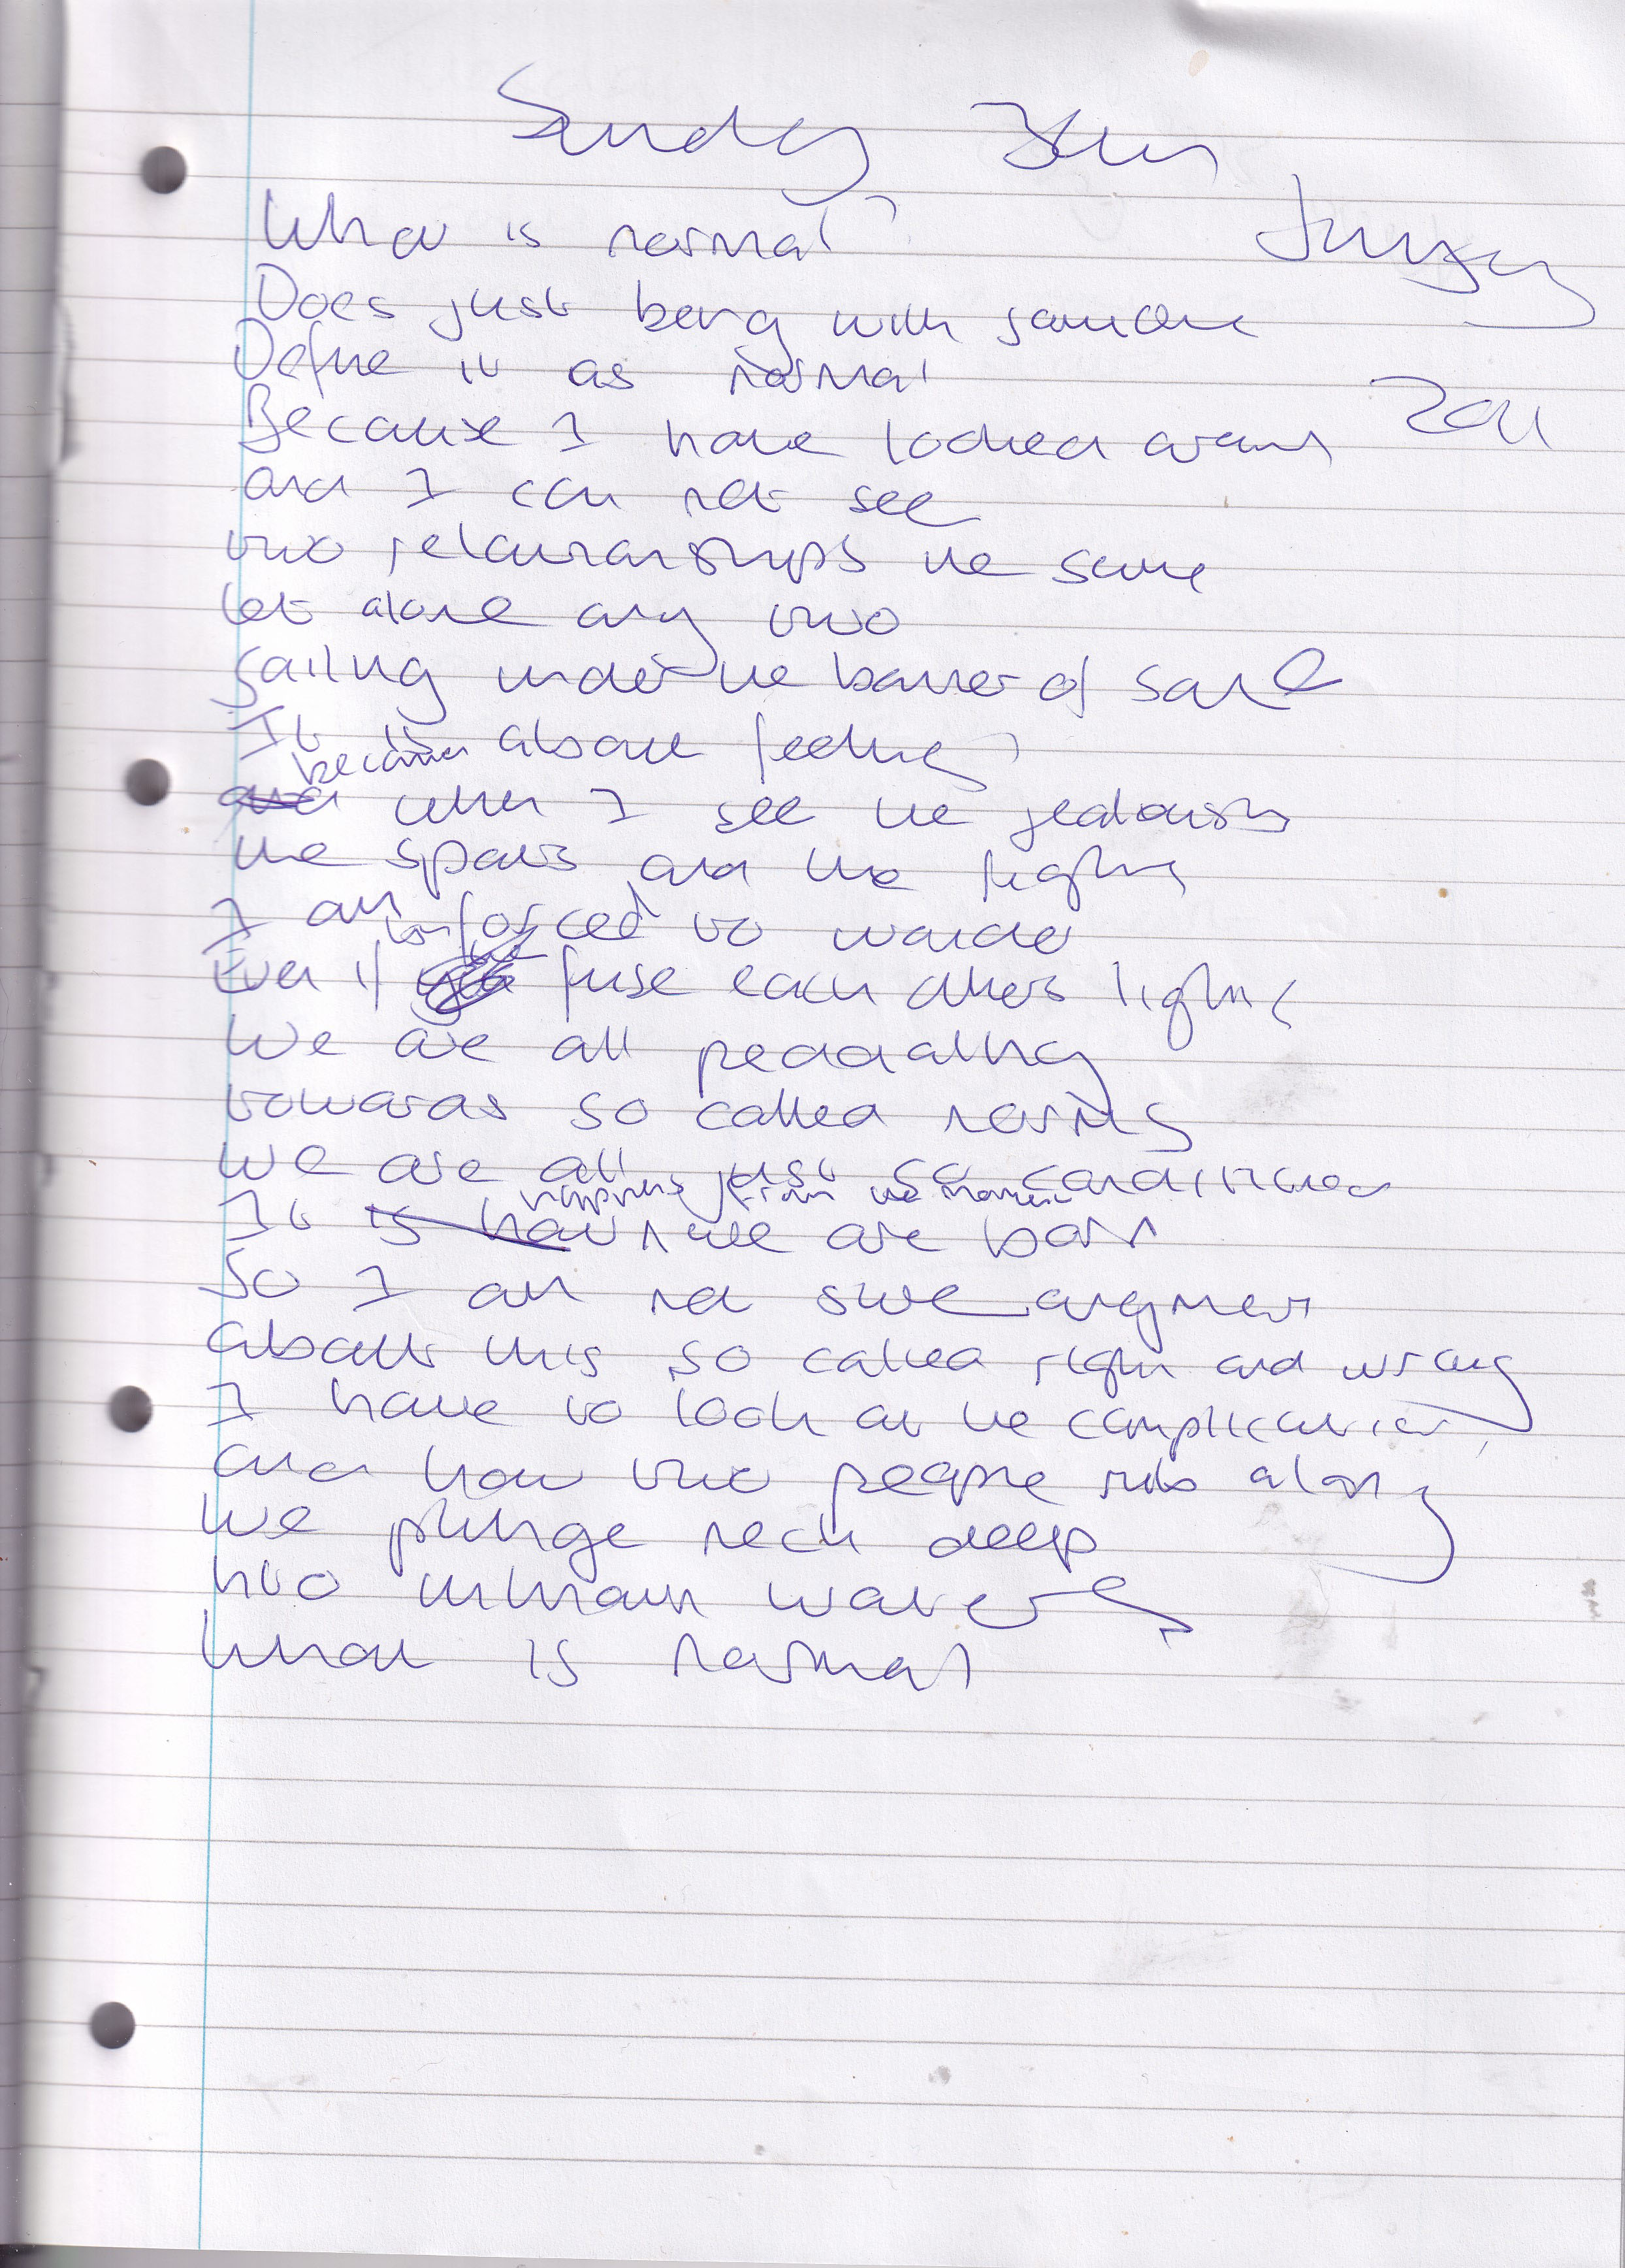 Sunday
What is normal?
2011
Does just being with someone
Define it as normal
Because I have looked around
and I can not see
two relationships the same
let alone any two
sailing under the banner of sane
It is about feelings
because
and when I see the jealousy
the spats and the fights
I am forced to wonder
Even if fuse each others lights
We are all peddaling
towards so called norms
We are all just so conditioned
happens from the moment
It is how we are born
So I am not sure
about this so called right and wrong
I have to look at the complication
and how two people rub along
We plunge neck deep
into unknown waters
What is normal